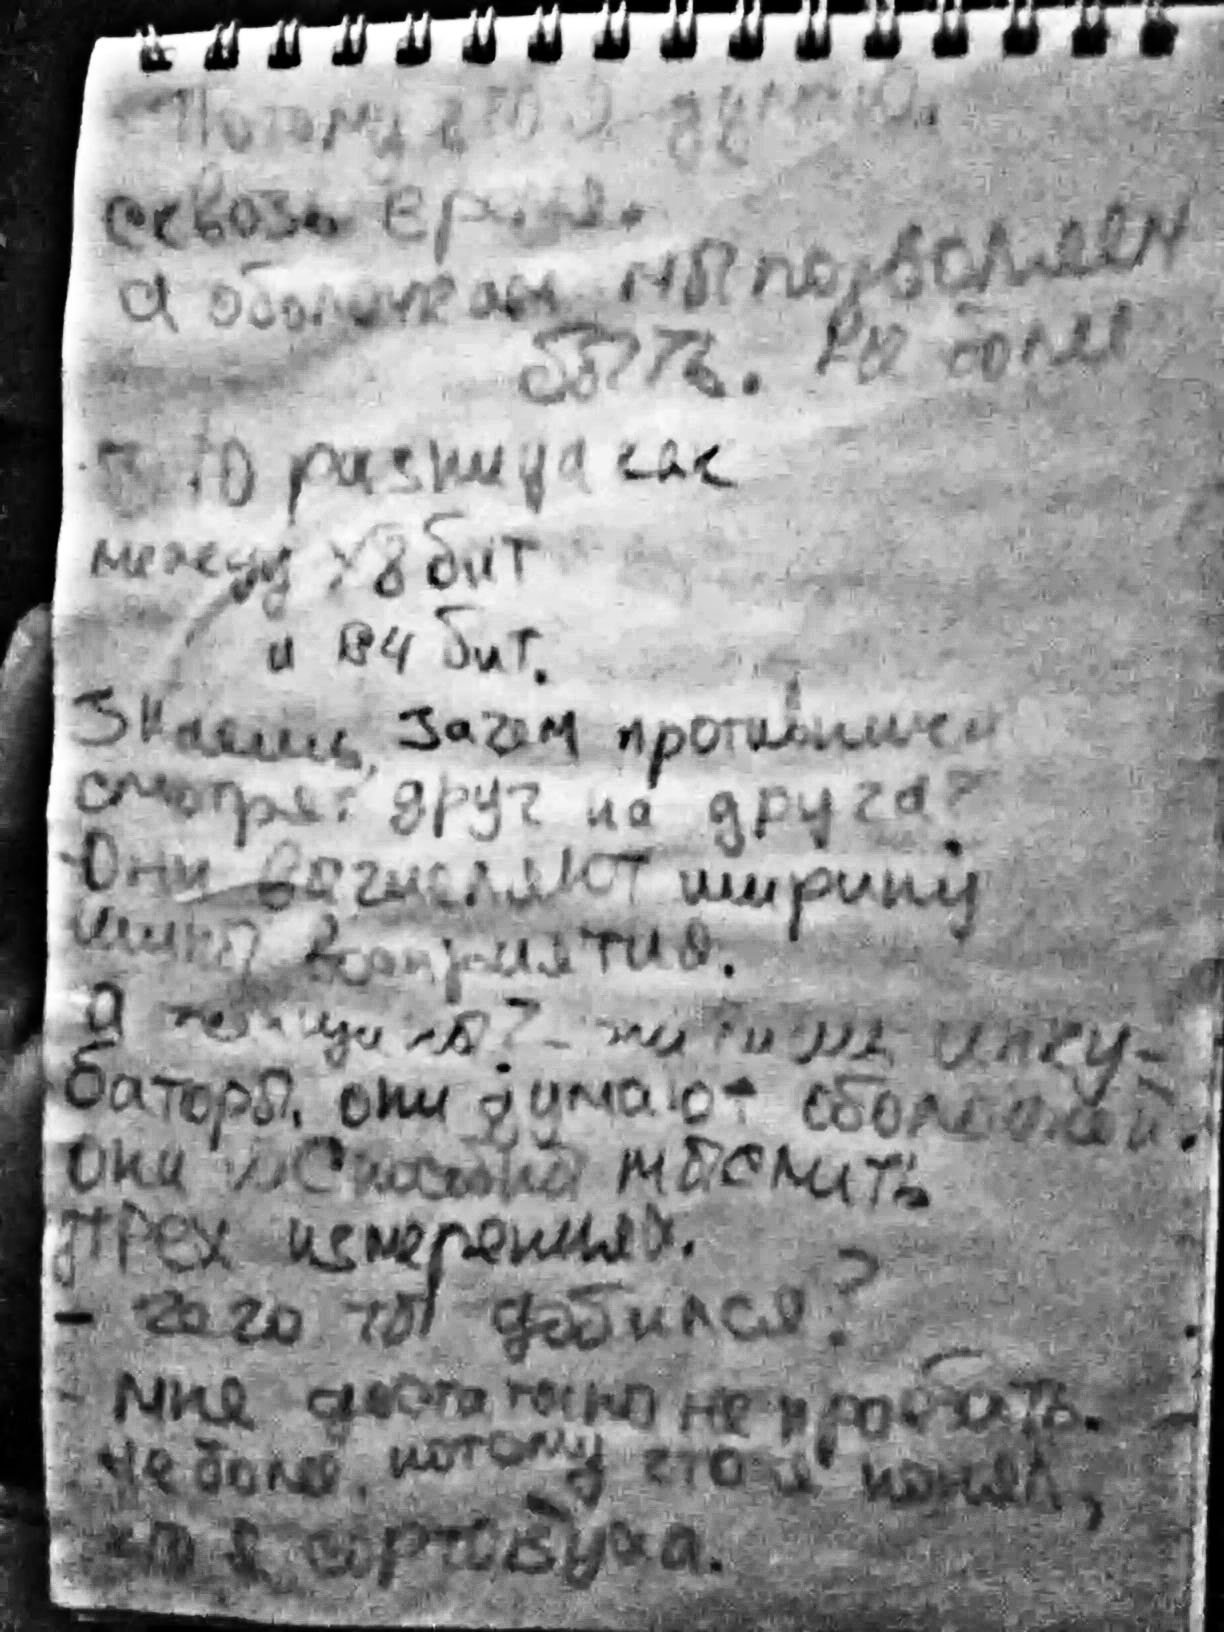 Потому что я думаю
сквозь время.
А оболочкам мы позволяем
быть. Не более
то разница как
между х8 бит
и 64 бит.
Знаешь, зачем противники
смотрят друг на друга?
Они вычисляют ширину
шины восприятия.
А
баторы. они думают оболочкой.
Они мыслить
трех измерениях.
- чего ты добился?
- мне достаточно не проебать.
не более. потому что я понял,
что я